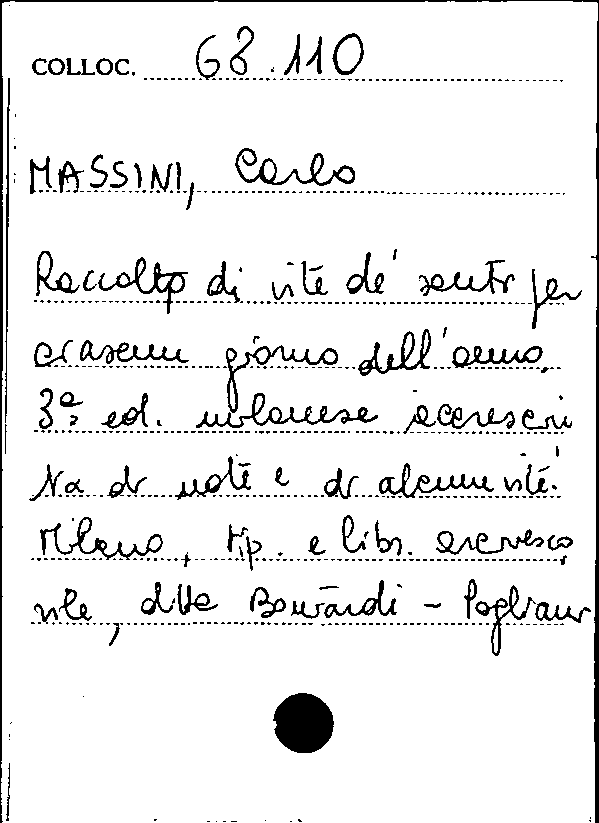 COLLOC. 68.110
MASSINI, Carlo
Raccolta di vite de' santi per
ciascun giorno dell'anno.
3ª ed. milanese accresciu
ta di note e di alcune vite.
Milano, tip. e libr. arcivesco
vile, ditta Boniardi - Pogliani